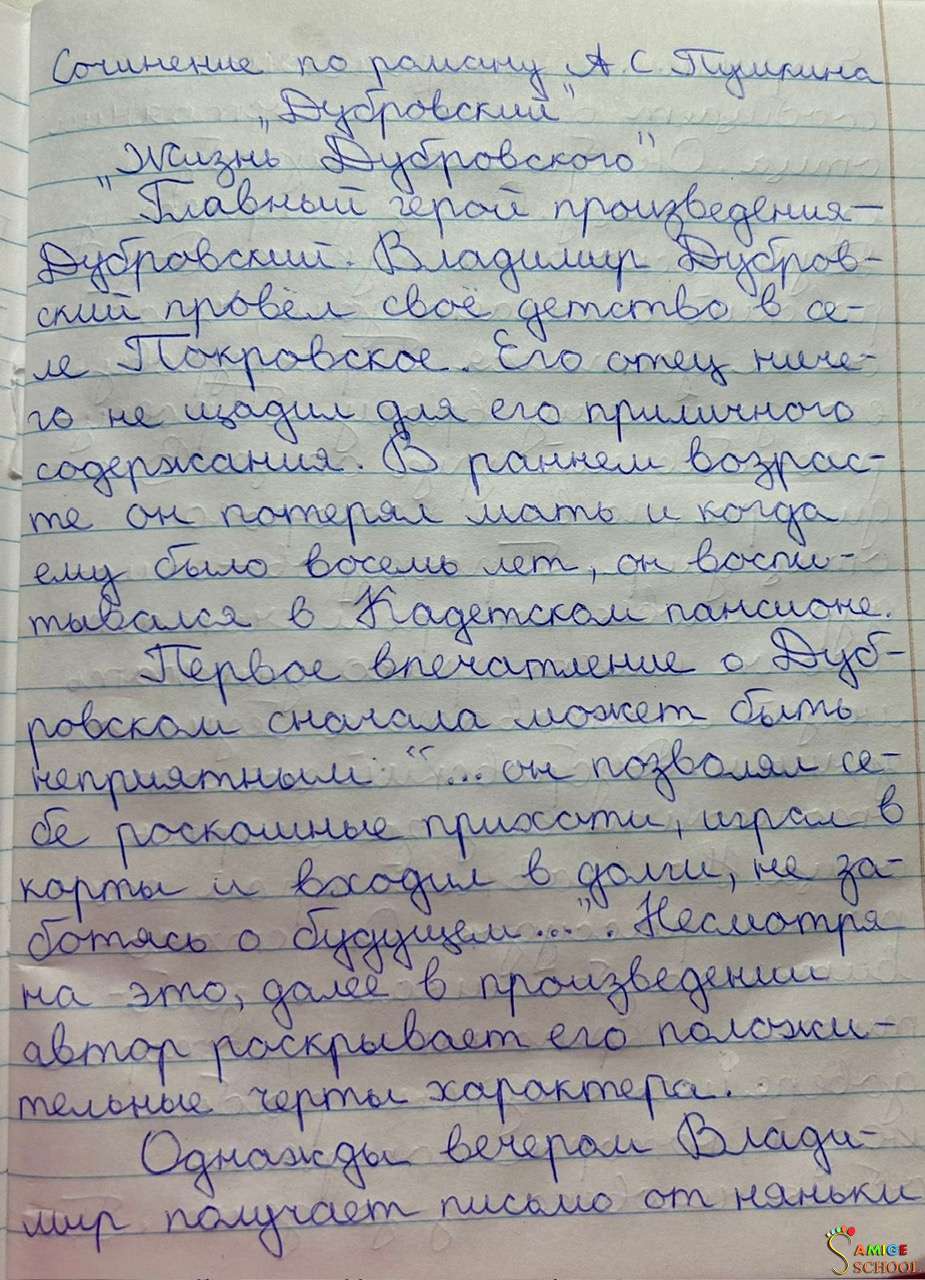 Сочинение по роману А.С. Пушкина
„Дубровский"
„Жизнь Дубровского"
Главный герой произведения—
Дубровский. Владимир Дубров-
ский провёл своё детство в се-
ле Покровское. Его отец ниче-
го не щадил для его приличного
содержания. В раннем возрас-
те он потерял мать и когда
ему было восемь лет, он воспи-
тывался в Кадетском пансионе.
Первое впечатление о Дуб-
ровском сначала может быть
неприятным "...он позволял се-
бе роскошные прихоти, играл в
карты и входил в долги, не за-
ботясь о будущем...". Несмотря
на это, далее в произведении
автор раскрывает его положи-
тельные черты характера.
Однажды вечером Влади-
мир получает письмо от няньки
SAMIGE
SCHOOL